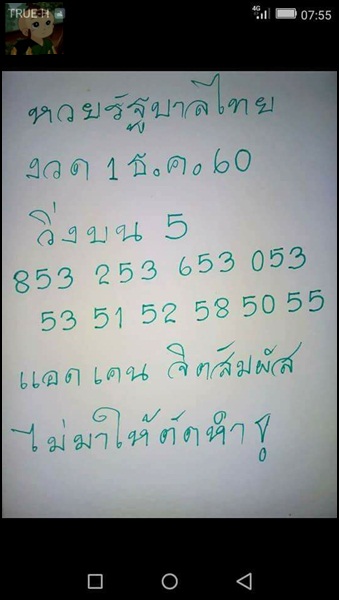 TRUE-H 4G 07:55
หวยรัฐบาลไทย
งวด 1 ธ.ค. 60
วิ่งบน 5
853 253 653 053
53 51 52 58 50 55
แอดเคน จิตสัมผัส
ไม่มาให้ตัดหำ